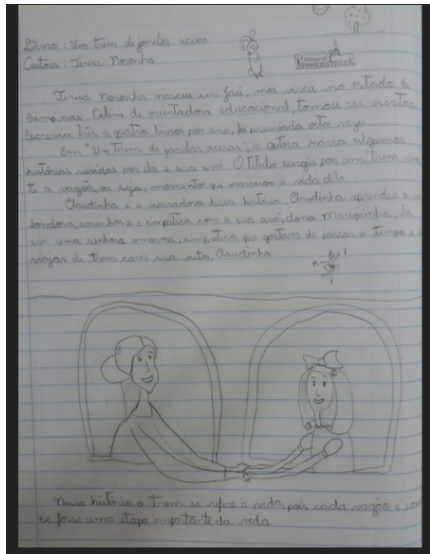 Livro: Um trem de janelas acesas
Autora: Teresa Noronha
Teresa Noronha nasceu em Jaú, mas viveu no estado de
Campinas. Além de orientadora educacional, tornou-se escritora
Escrevia três a quatro livros por ano, foi premiada oito vezes.
Em "Um Trem de janelas acesas", a autora narra algumas
histórias vividas por ela e sua avó. O título surgiu por um trem
vagões, ou seja, momentos que marcaram a vida dela.
Claudinha é a narradora dessa história. Claudinha aprendeu a
bondosa, carinhosa e simpática com a sua avó, dona Mariquinha, ela
era uma senhora amorosa, simpática que gostava de passar o tempo
viagens de trem com sua neta, Claudinha.
Nessa história, o trem se refere à vida, pois cada vagão é
se fosse uma etapa importante da vida